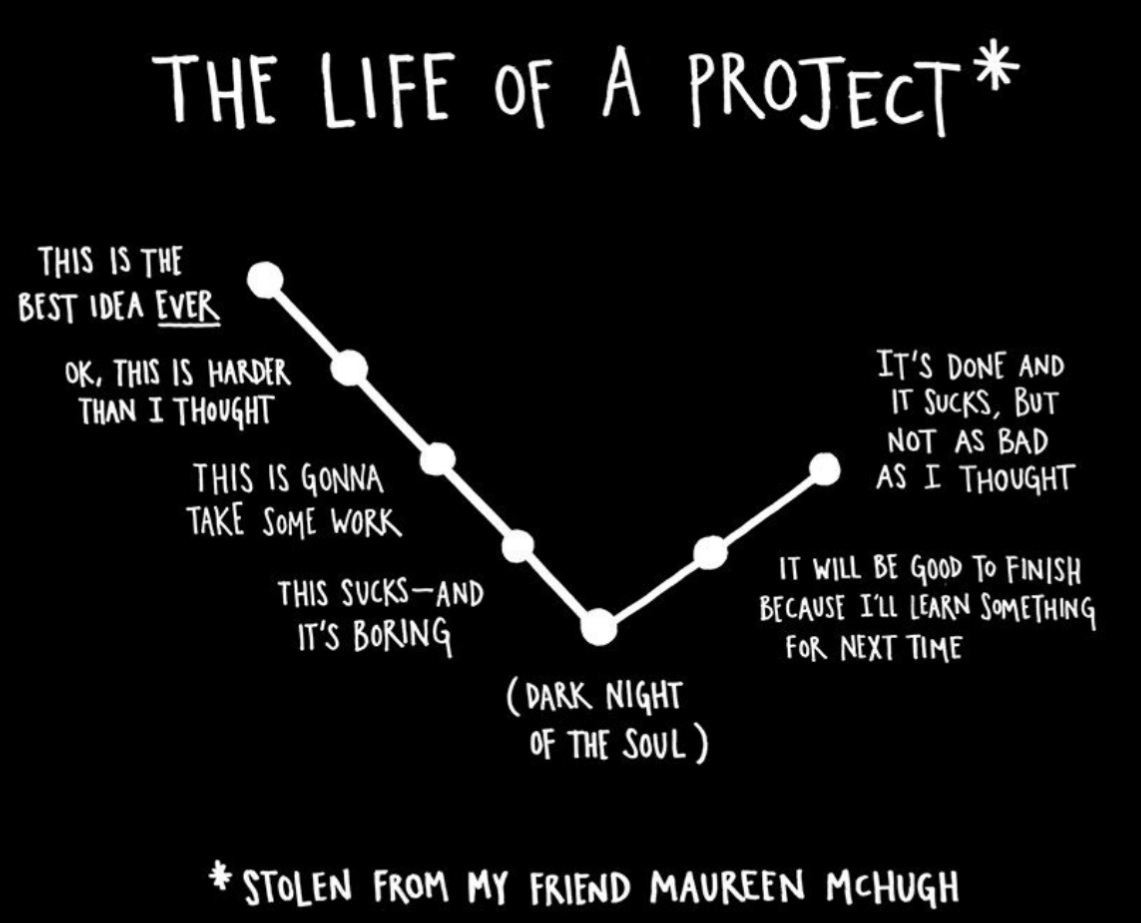 THE LIFE OF A PROJECT*
THIS IS THE
BEST IDEA EVER
OK, THIS IS HARDER
THAN I THOUGHT
THIS IS GONNA
TAKE SOME WORK
THIS SUCKS—AND
IT'S BORING
(DARK NIGHT
OF THE SOUL)
IT WILL BE GOOD TO FINISH
BECAUSE I'LL LEARN SOMETHING
FOR NEXT TIME
IT'S DONE AND
IT SUCKS, BUT
NOT AS BAD
AS I THOUGHT
* STOLEN FROM MY FRIEND MAUREEN MCHUGH